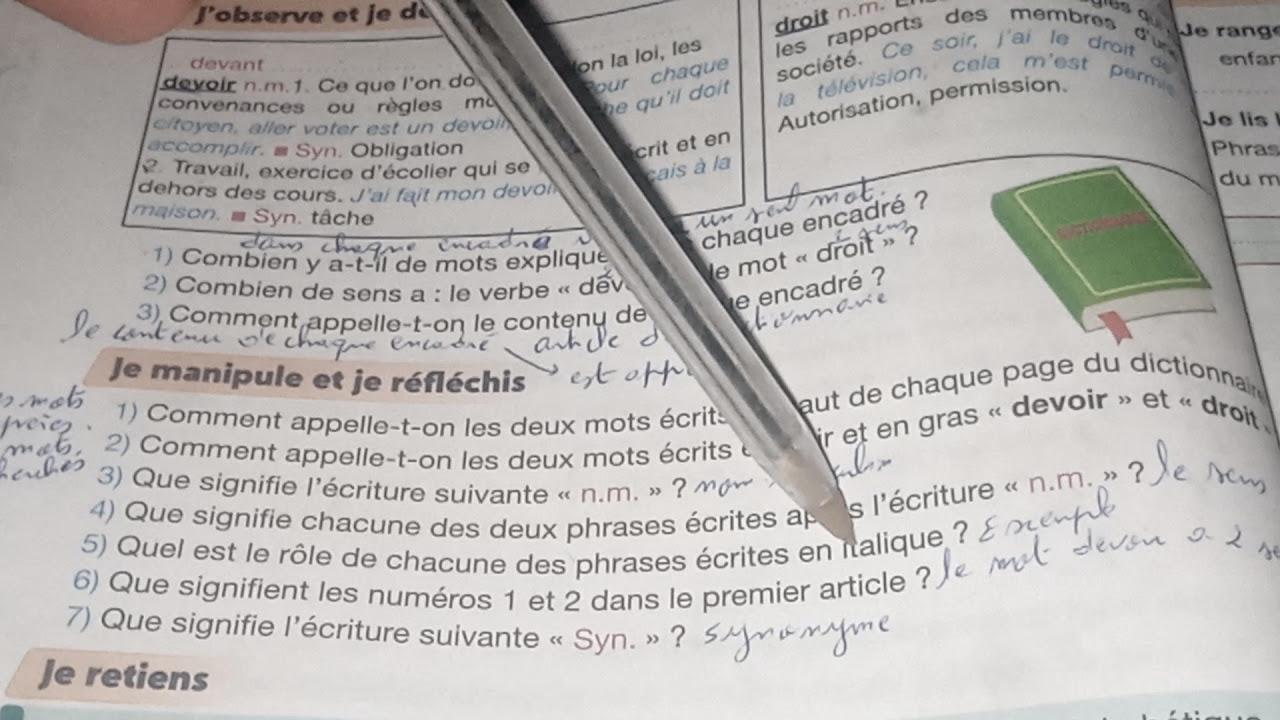 J'observe et je dé
devant
devoir n.m. 1. Ce que l'on do
on la loi, les
convenances ou règles mo
our chaque
citoyen, aller voter est un devoir
e qu'il doit
accomplir. ■ Syn. Obligation
2. Travail, exercice d'écolier qui se
crit et en
dehors des cours. J'ai fait mon devoir
çais à la
maison. ■ Syn. tâche
droit n.m.
les rapports des membres d'une
société. Ce soir, j'ai le droit de
la télévision, cela m'est permis
Autorisation, permission.
un seul mot
dans chaque encadré
1) Combien y a-t-il de mots expliqué
chaque encadré ?
2) Combien de sens a : le verbe « dev
le mot « droit » ?
3) Comment appelle-t-on le contenu de
e encadré ?
le contenu de chaque encadré
article d
ctionnaire
est app
Je manipule et je réfléchis
1) Comment appelle-t-on les deux mots écrits
aut de chaque page du dictionnaire
2) Comment appelle-t-on les deux mots écrits
ir et en gras « devoir » et « droit
3) Que signifie l'écriture suivante « n.m. » ? nom
4) Que signifie chacune des deux phrases écrites ap s l'écriture « n.m. » ? le sens
5) Quel est le rôle de chacune des phrases écrites en italique ? Exemple
6) Que signifient les numéros 1 et 2 dans le premier article ? le mot devoir a 2 se
7) Que signifie l'écriture suivante « Syn. » ? synonyme
mots
mots
Je retiens
DICTIONNAIRE
Je range
enfan
Je lis
Phras
du m